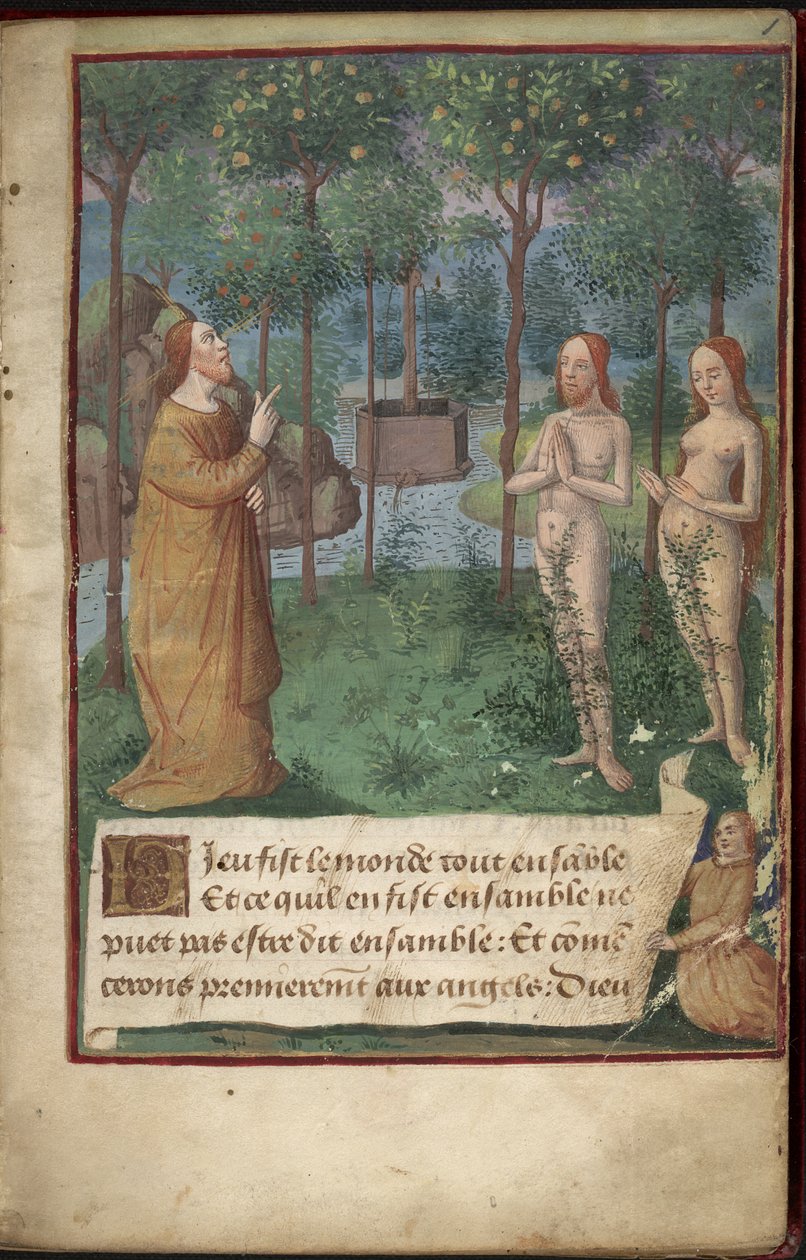 1
Dieu fist le monde tout ensāble
Et ce quil en fist ensamble ne
puet pas estre dit ensamble : Et cōmē
cerons premieremt̄ aux angels : Dieu